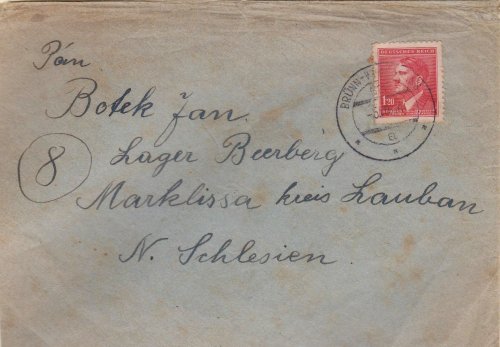 Pán
Botek Jan.
8
Lager Beerberg
Marklissa kreis Lauban
N. Schlesien.
DEUTSCHES REICH
1.20
BRÜNN
a